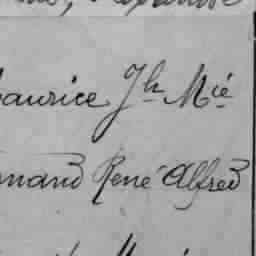 aurice Jh Mié
rnand René Alfred